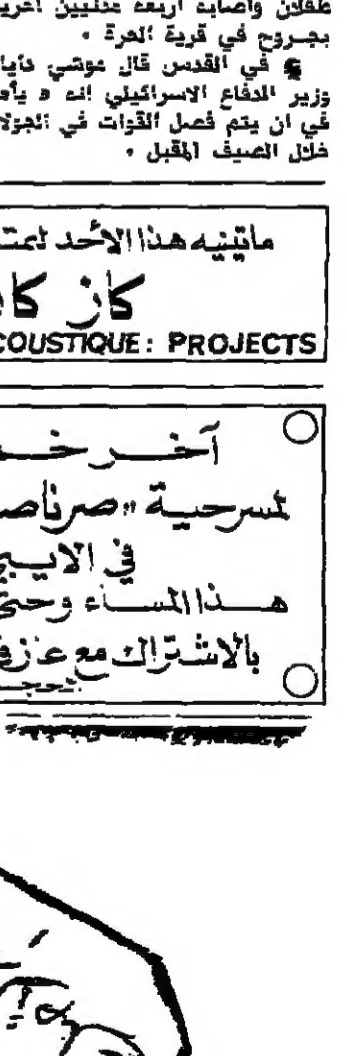 طفلان واصابة اربعة مدنيين اخري
بجروح في قرية
في القدس قال موشي دايا
وزير الدفاع الاسرائيلي انه « يأم
في ان يتم فصل القوات في الجولا
خلال الصيف المقبل .
ماتينيه هذا الأحد
كاز كا
COUSTIQUE: PROJECTS
آخر خـ
لمسرحية «صرناصـ
في الايبيـ
هذا المساء وحتى
بالاشتراك مع